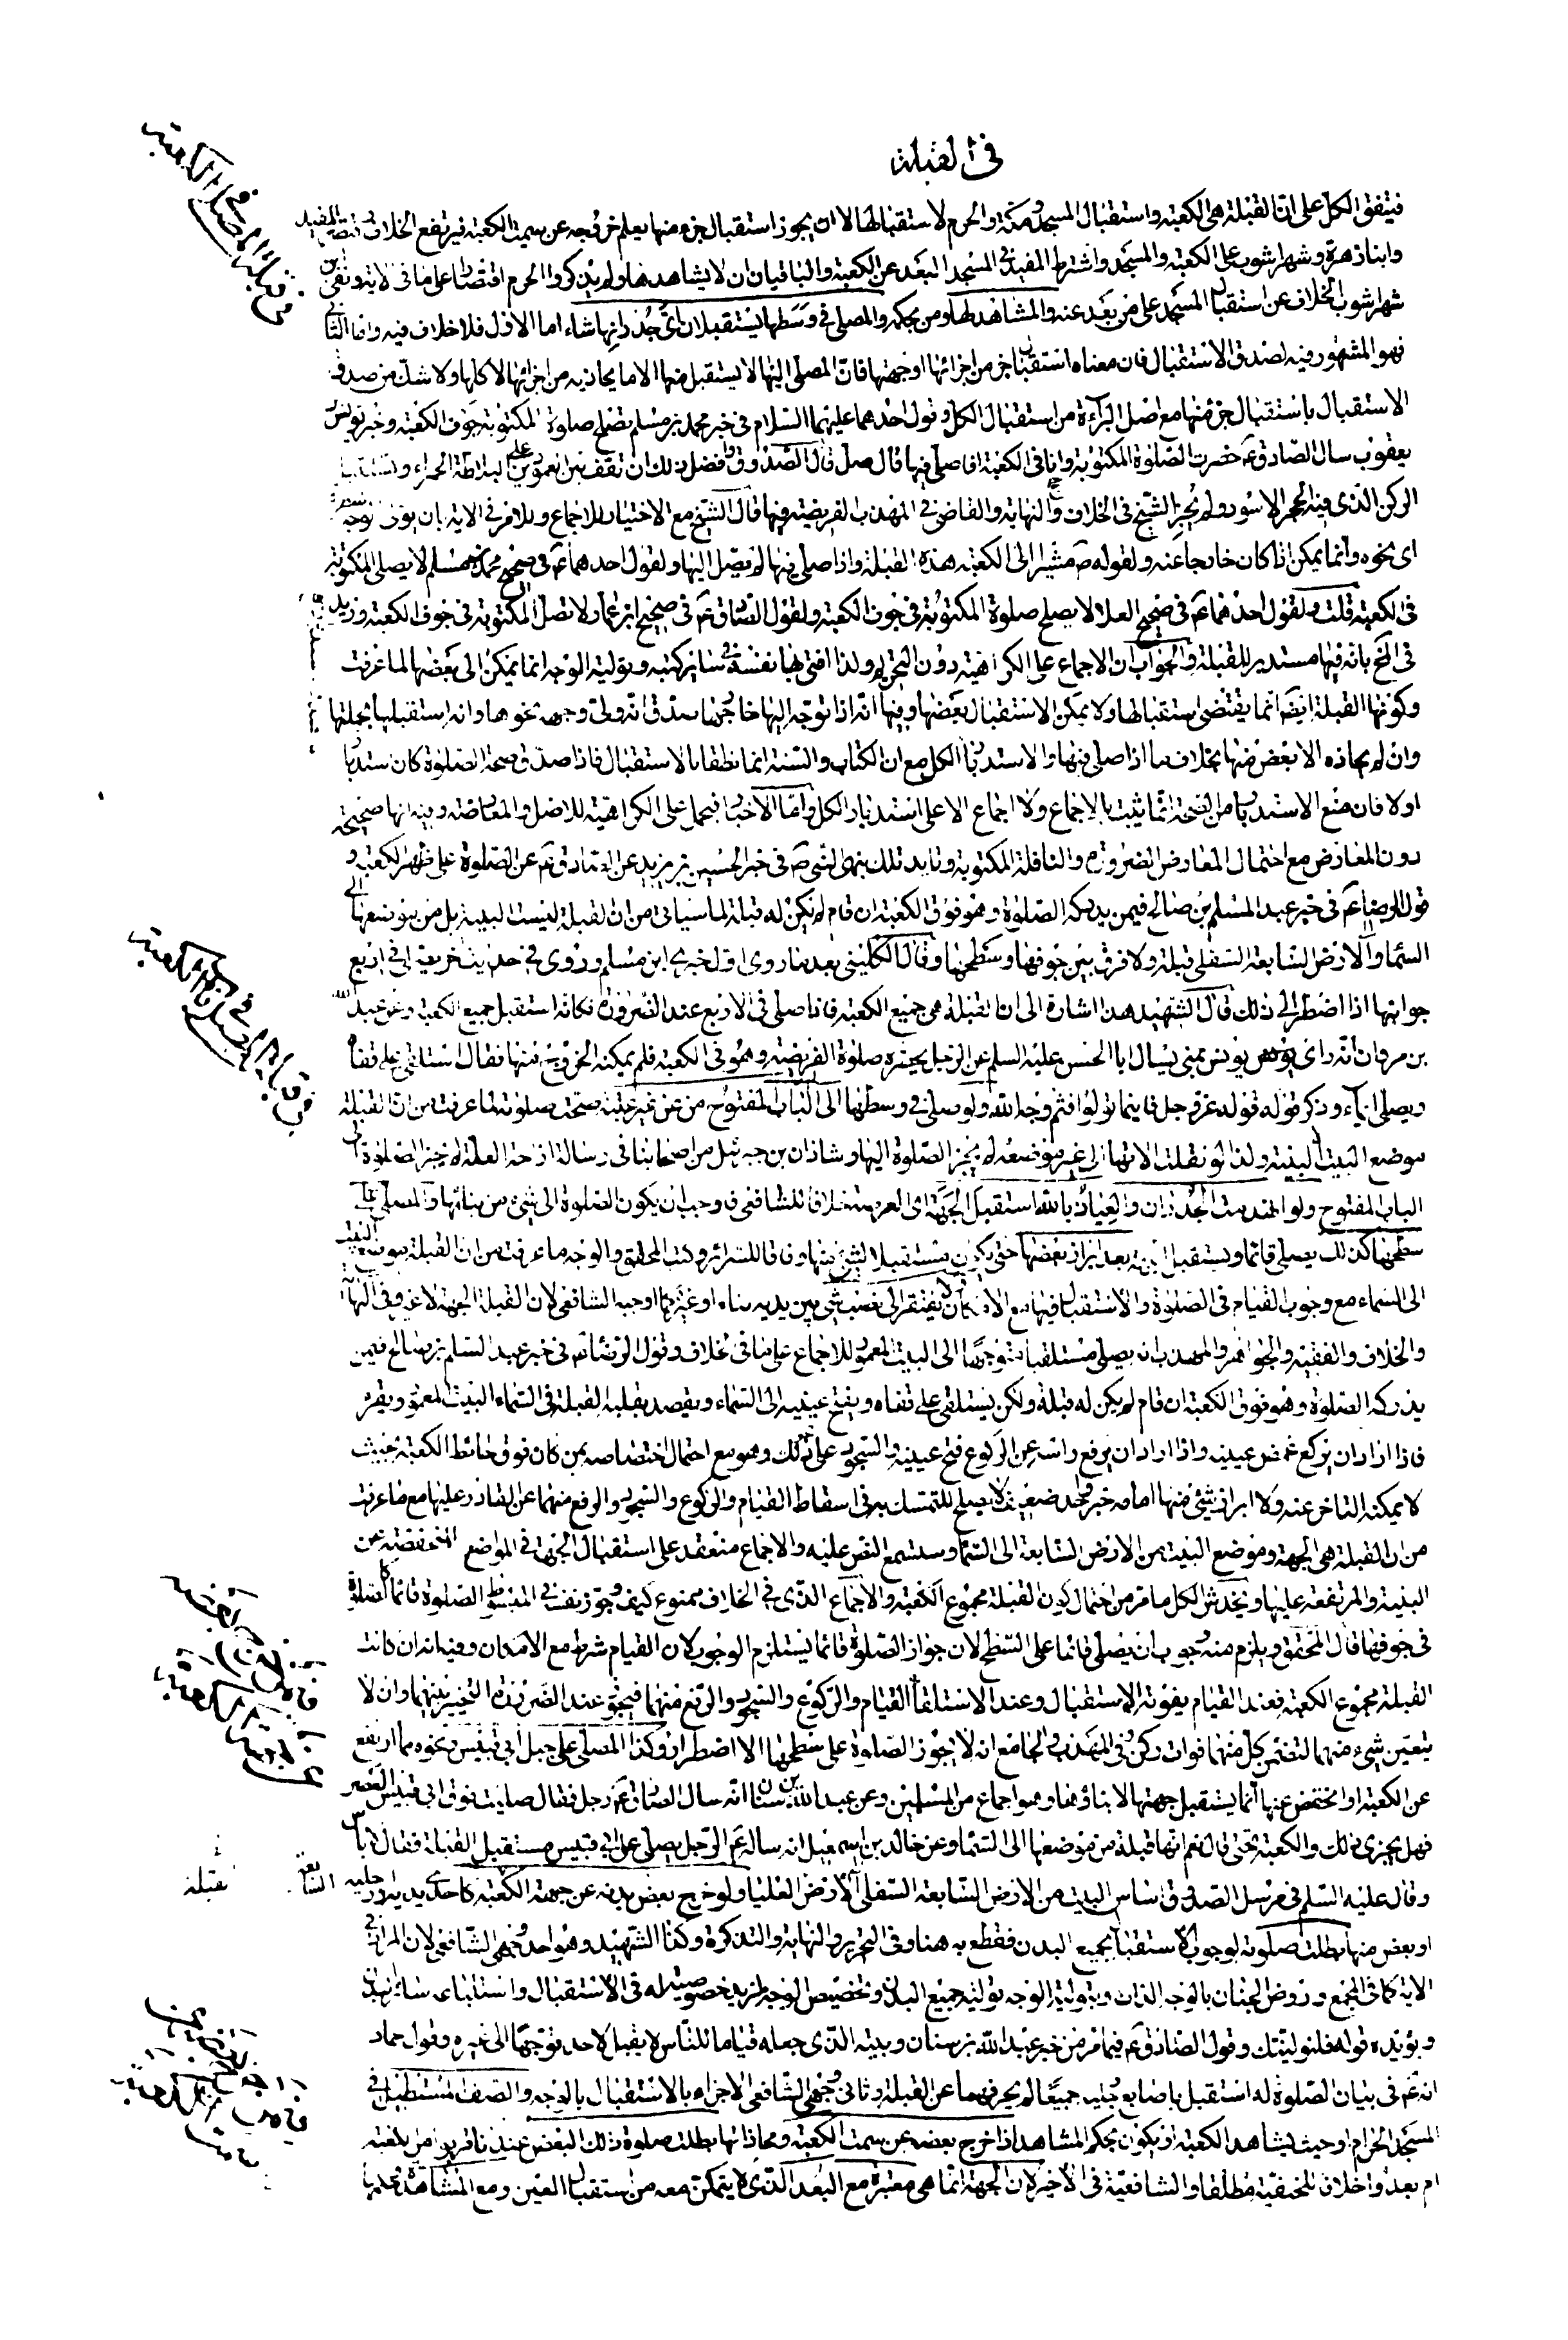 في القبلة
فيتفق الكل على ان القبلة هي الكعبة واستقبال المسجد ومكة والحرم لاستقبالها لا ان يجوز استقبال جزء منها يعلم خروجه عن سمت الكعبة فيرتفع الخلاف
وابنا زهرة وشهراشوب على الكعبة والمسجد واشترط المفيد في المسجد البعد عن الكعبة والباقيان ان لا يشاهدها ولم يذكروا الحرم اقتصارا على ما في الاية ونفى
شهراشوب الخلاف عن استقبال المسجد على من بعد عنه والمشاهد لها ومن بحكمه والمصلي في وسطها يستقبلان اي جدرانها شاء اما الاول فلا خلاف فيه واما الثاني
فهو المشهور فيه لصدق الاستقبال فان معناه استقبال جزء من اجزائها او جهتها فان المصلي اليها لا يستقبل منها الا ما يحاذيه من اجزائها لا كلها ولا شك من صدق
الاستقبال باستقبال جزء منها مع اصل البراءة من استقبال الكل وقول احدهما عليهما السلام في خبر محمد بن مسلم تصلح صلوة المكتوبة جوف الكعبة وخبر يونس
يعقوب سال الصادق ع حضرت الصلوة المكتوبة وانا في الكعبة افاصلي فيها قال صل قال الصدوق وافضل ذلك ان تقف بين العمودين على البلاطة الحمراء وتستقبل
الركن الذي فيه الحجر الاسود ولم يجز الشيخ في الخلاف والنهاية والقاضي في المهذب الفريضة فيها قال الشيخ مع الاختيار للاجماع وللامر في الاية بان يولى وجهه
اي نحوه وانما يمكن اذا كان خارجا عنه ولقوله ص مشيرا الى الكعبة هذه القبلة واذا صلى فيها لم يصل اليها ولقول احدهما ع في صحيح محمد بن مسلم لا يصلي المكتوبة
في الكعبة قلت ولقول احدهما ع في صحيح العلا لا يصلح صلوة المكتوبة في جوف الكعبة ولقول الصادق ع في صحيح ابن عمار لا تصل المكتوبة في جوف الكعبة وزيد
في الحج بانه فيها مستدبر للقبلة والجواب ان الاجماع على الكراهية دون التحريم ولذا افتى بها نفسه في سائر كتبه وتولية الوجه انما يمكن الى بعضها لما عرفت
وكونها القبلة ايضا انما يقتضي استقبالها ولا يمكن الا استقبال بعضها وفيها انه اذا توجه اليها خارجها صدق انه ولى وجهه نحوها وانه استقبلها بجملتها
وان لم يحاذه الا بعض منها بخلاف ما اذا صلى فيها والاستدبار الكل مع ان الكتاب والسنة انما نطقا بالاستقبال فاذا صدق صحة الصلوة كان مستدبرا
اولا فان منع الاستدبار من الصحة انما ثبت بالاجماع ولا اجماع الا على استدبار الكل واما الاخبار فيحمل على الكراهية للاصل والمعارضة وبينه انها صحيحة
دون المعارض مع احتمال المعارض الضرورة والنافلة المكتوبة وتايد تلك بنهي النبي ص في خبر الحسين بن زيد عن الصادق ع عن الصلوة على ظهر الكعبة و
قول الرضا ع في خبر عبد السلم بن صالح فيمن يدركه الصلوة وهو فوق الكعبة ان قام لم يكن له قبلة لما سياتي من ان القبلة ليست البنية بل من موضعها الى
السماء والارض السابعة السفلى قبلة ولا فرق بين جوفها وسطحها وقال الكليني بعد ما روى اول خبري ابن مسلم وروي في حديث اخر يصلي في اربع
جوانبها اذا اضطر الى ذلك قال الشهيد هذا اشارة الى ان القبلة هي جميع الكعبة فاذا صلى في الاربع عند الضرورة فكانه استقبل جميع الكعبة وعن عبد الله
بن مروان انه راى يونس بمنى يسال ابا الحسن عليه السلم عن الرجل يحضره صلوة الفريضة وهو في الكعبة فلم يمكنه الخروج منها فقال استلقى على قفاه
ويصلي ايماء وذكر قوله قوله عز وجل فاينما تولوا فثم وجه الله ولو صلى في وسطها الى الباب المفتوح من غير عتبة صحت صلوته لما عرفت من ان القبلة
موضع البيت لا البنية ولذا لو نقلت الاتها الى غير موضعه لم يجز الصلوة اليها وشاذان بن جبرئيل من اصحابنا في رسالة ازاحة العلة لم يجز الصلوة الى
الباب المفتوح ولو انهدمت الجدران والعياذ بالله استقبل الجهة اي العرصة خلافا للشافعي فاوجب ان يكون الصلوة الى شيء من بنائها والمصلي على
سطحها كذلك يصلي قائما ويستقبل اي جهة بعد ابراز بعضها حتى يكون مستقبلا لشيء منها وفاقا للسرائر وكتب المحقق والوجه ما عرفت من ان القبلة موضع البيت
الى السماء مع وجوب القيام في الصلوة والاستقبال فيها مع الامكان ولا يفتقر الى نصب شيء بين يديه بناء او غيره كما اوجبه الشافعي لان القبلة الجهة لا غير وفي النهاية
والخلاف والفقيه والجواهر والمهذب انه يصلي مستلقيا متوجها الى البيت المعمور للاجماع على ما في الخلاف وقول الرضا ع في خبر عبد السلم بن صالح فيمن
يدركه الصلوة وهو فوق الكعبة ان قام لم يكن له قبلة ولكن يستلقي على قفاه ويفتح عينيه الى السماء ويقصد بقلبه القبلة في السماء البيت المعمور ويقرء
فاذا اراد ان يركع غمض عينيه واذا اراد ان يرفع راسه عن الركوع فتح عينيه والسجود على نحو ذلك وهو مع احتمال اختصاصه بمن كان فوق حائط الكعبة بحيث
لا يمكنه التاخر عنه ولا ابراز شيء منها امامه خبر واحد ضعيف لا يصلح للتمسك به في اسقاط القيام والركوع والسجود والرفع منهما عن القادر عليها مع ما عرفت
من ان القبلة هي الجهة وموضع البنية من الارض السابعة الى السماء وستسمع النص عليه والاجماع منعقد على استقبال الجهة في المواضع المنخفضة عن
البنية والمرتفعة عليها ويخدش الكل ما مر من احتمال كون القبلة مجموع الكعبة والاجماع الذي في الخلاف ممنوع كيف وجوز نفسه في المبسوط الصلوة قائما كالصلوة
في جوفها قال المحقق ويلزم منه وجوب ان يصلي قائما على السطح لان جواز الصلوة قائما يستلزم الوجوب لان القيام شرط مع الامكان وفيه انه ان كانت
القبلة مجموع الكعبة فعند القيام يفوته الاستقبال وعند الاستلقاء القيام والركوع والسجود والرفع منهما فيجوز عند الضرورة التخيير بينهما وان لا
يتعين شيء منهما لتضمن كل منهما فوات ركن وفي المهذب والجامع انه لا يجوز الصلوة على سطحها الا اضطرارا وكذا المصلي على جبل ابي قبيس ونحوه مما ارتفع
عن الكعبة او انخفض عنها انما يستقبل جهتها لا بناؤها وهو اجماع من المسلمين وعن عبد الله بن سنان انه سال الصادق ع رجل فقال صليت فوق ابي قبيس العصر
فهل يجزي ذلك والكعبة تحتي قال نعم انها قبلة من موضعها الى السماء وعن خالد بن اسمعيل انه ساله ع الرجل يصلي على ابي قبيس مستقبل القبلة فقال لا باس
وقال عليه السلم في مرسل الصدوق اساس البيت من الارض السابعة السفلى الى الارض العليا ولو خرج بعض بدنه عن جهة الكعبة كاحدى يديه او رجليه
او بعض منها بطلت صلوته لوجوب الاستقبال بجميع البدن فقطع به هنا وفي التحرير والنهاية والتذكرة وكذا الشهيد وهو احد وجهي الشافعي لان المراد في
الاية كما في المجمع وروض الجنان بالوجه الذات وبتولية الوجه تولية جميع البدن وتخصيص الوجه لمزيد خصوصية له في الاستقبال واستتباعه سائر البدن
ويؤيده قوله فلنولينك وقول الصادق ع فيما مر من خبر عبد الله بن سنان وبيته الذي جعله قياما للناس لا يقبل لاحد توجها الى غيره وقول حماد
انه ع في بيان الصلوة له استقبل باصابع رجليه جميعا لم يحرفهما عن القبلة وثاني وجهي الشافعي الاجزاء بالاستقبال بالوجه والصف المستطيل في
المسجد الحرام او حيث يشاهد الكعبة او يكون بحكم المشاهد اذا خرج بعضه عن سمت الكعبة ومحاذاتها بطلت صلوة ذلك البعض عندنا قربوا من الكعبة
ام بعدوا خلافا للحنفية مطلقا والشافعية في الاخير لان الجهة انما هي معتبرة مع البعد الذي لا يتمكن معه من استقبال العين ومع المشاهدة